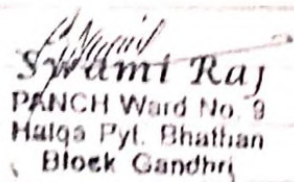 Swami Raj
PANCH Ward No. 9
Halqa Pyt. Bhathan
Block Gandhri